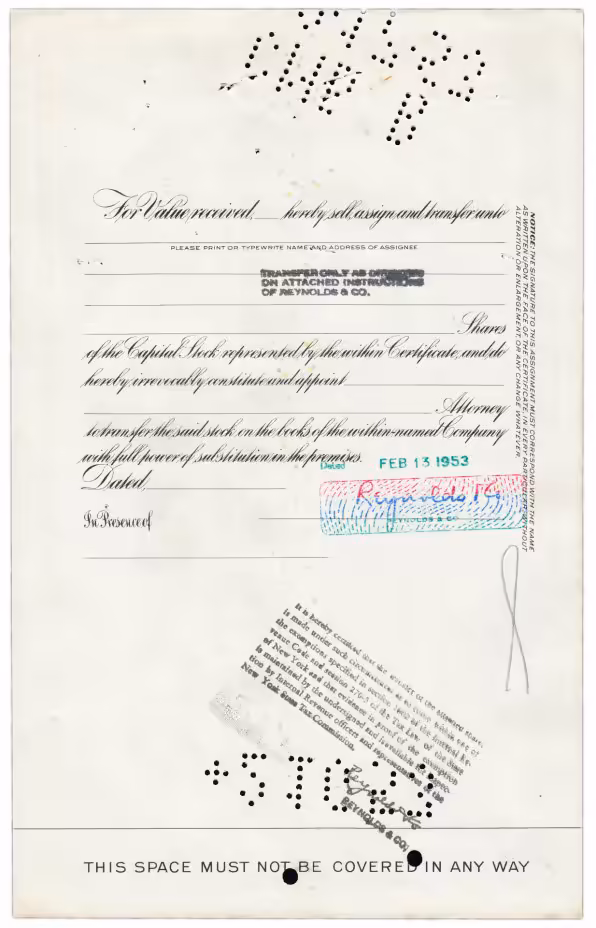 For Value received, hereby sell, assign and transfer unto
PLEASE PRINT OR TYPEWRITE NAME AND ADDRESS OF ASSIGNEE
TRANSFER ONLY AS DIRECTED
ON ATTACHED INSTRUCTIONS
OF REYNOLDS & CO.
Shares
of the Capital Stock represented by the within Certificate, and do
hereby irrevocably constitute and appoint
Attorney
to transfer the said stock on the books of the within-named Company
with full power of substitution in the premises.
Dated FEB 13 1953
Dated,
Reynolds & Co
REYNOLDS & CO
In Presence of
NOTICE: THE SIGNATURE TO THIS ASSIGNMENT MUST CORRESPOND WITH THE NAME
AS WRITTEN UPON THE FACE OF THE CERTIFICATE, IN EVERY PARTICULAR, WITHOUT
ALTERATION OR ENLARGEMENT, OR ANY CHANGE WHATEVER.
It is hereby certified that the transfer of the attached shares
is made under such circumstances as to come within one of
the exemptions specified in section 1802 of the Internal Re-
venue Code and section 270-5 of the Tax Law of the State
of New York and that evidence in proof of the exemption
is maintained by the undersigned and is available for inspec-
tion by Internal Revenue officers and representatives of the
New York State Tax Commission.
Reynolds & Co
REYNOLDS & CO.
THIS SPACE MUST NOT BE COVERED IN ANY WAY